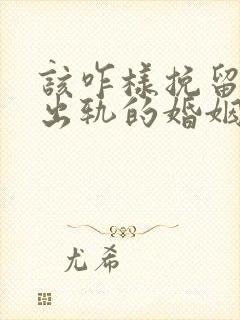 該咋樣挽留
出轨的婚姻
尤希